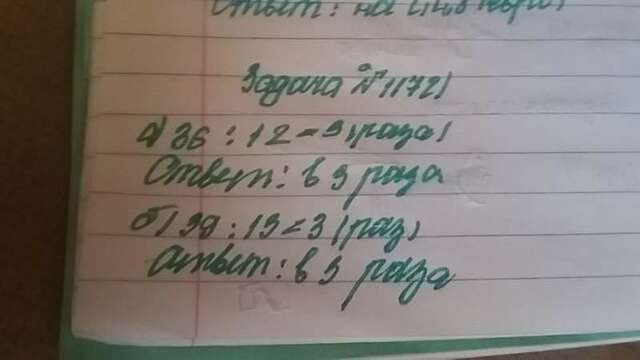 Ответ: на
Задача №1172
а) 36 : 12 = 3 (раза)
Ответ: в 3 раза
б) 39 : 13 = 3 (раз)
Ответ: в 3 раза